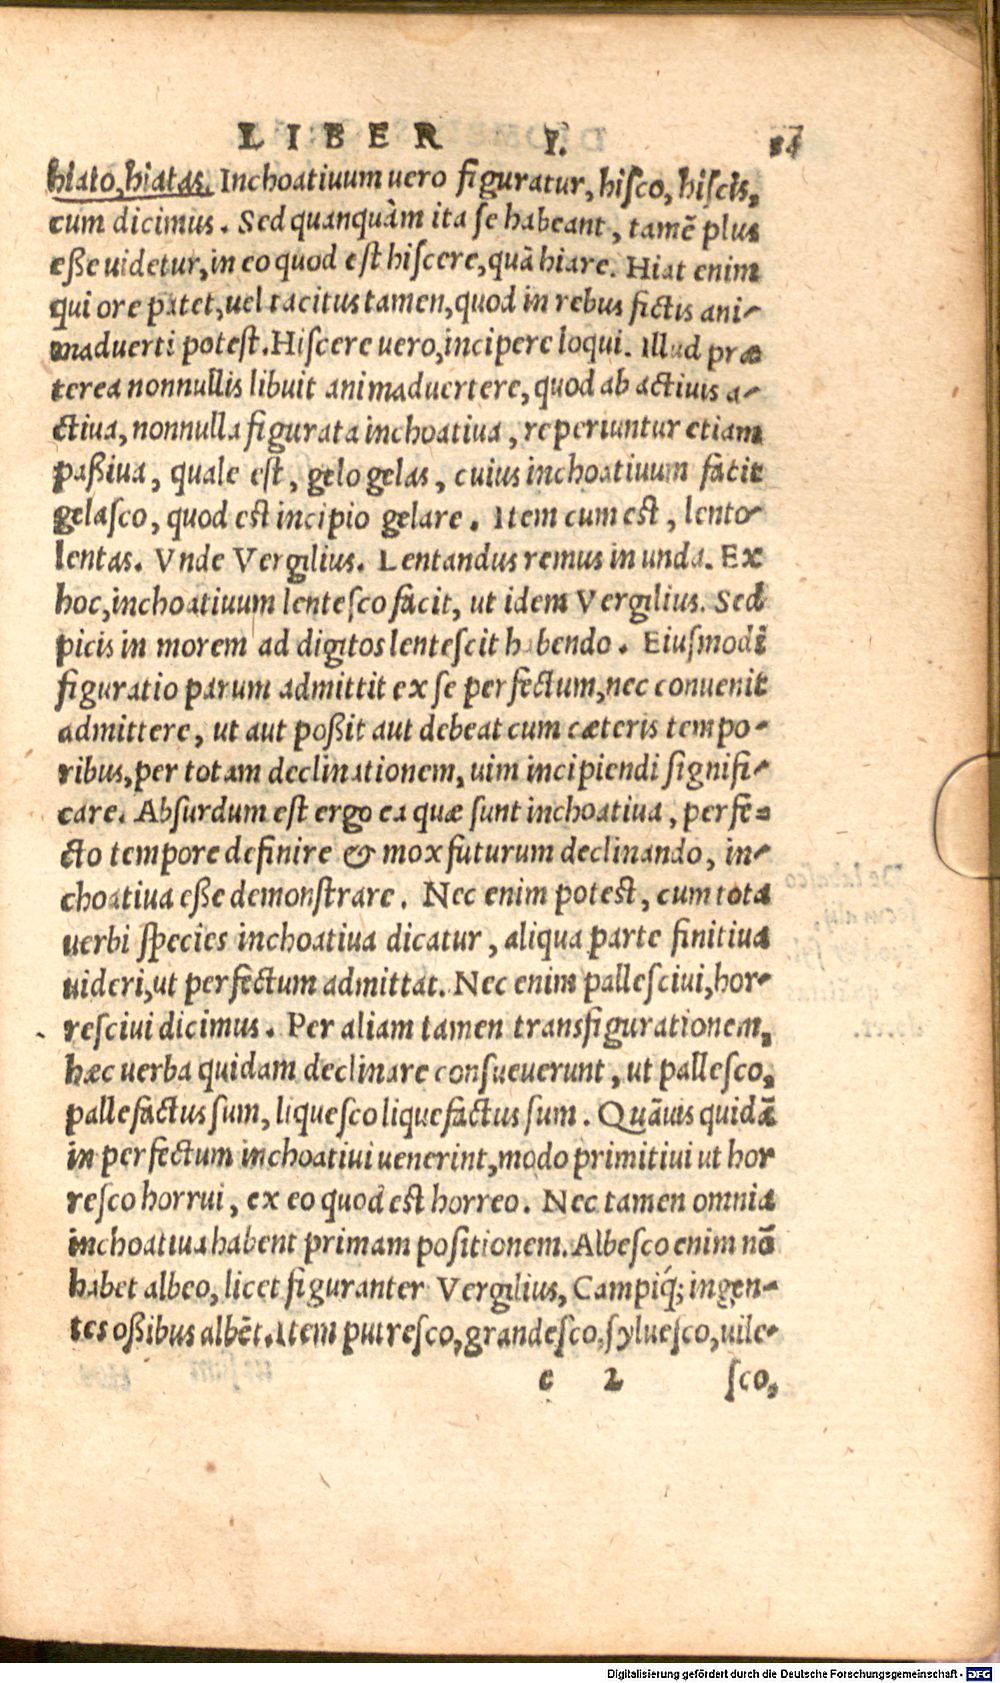 LIBER I.
hiato, hiatas. Inchoatiuum uero figuratur, hiſco, hiſcis,
cum dicimus. Sed quanquàm ita ſe habeant, tamẽ plus
eſſe uidetur, in eo quod eſt hiſcere, quã hiare. Hiat enim
qui ore patet, uel tacitus tamen, quod in rebus fictis ani-
maduerti poteſt. Hiſcere uero, incipere loqui. Illud præ
terea nonnullis libuit animaduertere, quod ab actiuis a-
ctiua, nonnulla figurata inchoatiua, reperiuntur etiam
paſſiua, quale eſt, gelo gelas, cuius inchoatiuum facit
gelaſco, quod eſt incipio gelare. Item cum eſt, lento
lentas. Vnde Vergilius. Lentandus remus in unda. Ex
hoc, inchoatiuum lenteſco facit, ut idem Vergilius. Sed
picis in morem ad digitos lenteſcit habendo. Eiuſmodi
figuratio parum admittit ex ſe perfectum, nec conuenit
admittere, ut aut poſſit aut debeat cum cæteris tempo-
ribus, per totam declinationem, uim incipiendi ſignifi-
care. Abſurdum eſt ergo ea quæ ſunt inchoatiua, perfe-
cto tempore definire & mox futurum declinando, in-
choatiua eſſe demonſtrare. Nec enim poteſt, cum tota
uerbi ſpecies inchoatiua dicatur, aliqua parte finitiua
uideri, ut perfectum admittat. Nec enim palleſciui, hor-
reſciui dicimus. Per aliam tamen transfigurationem,
hæc uerba quidam declinare conſueuerunt, ut palleſco,
pallefactus ſum, liqueſco liquefactus ſum. Quãuis quidã
in perfectum inchoatiui uenerint, modo primitiui ut hor
reſco horrui, ex eo quod eſt horreo. Nec tamen omnia
inchoatiua habent primam poſitionem. Albeſco enim nõ
habet albeo, licet figuranter Vergilius, Campiq́; ingen-
tes oſſibus albẽt. Item putreſco, grandeſco, ſylueſco, uile-
c 2 ſco,
Digitalisierung gefördert durch die Deutsche Forschungsgemeinschaft - DFG